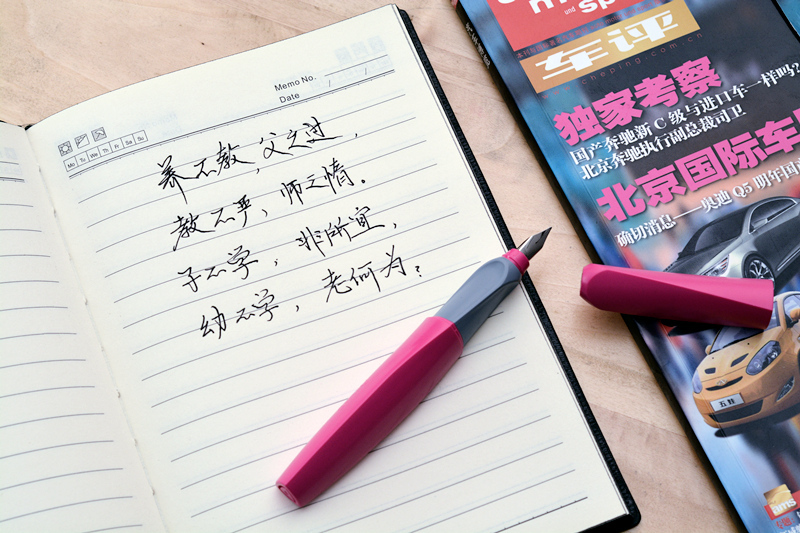 Memo No.
Date / /
Mo Tu We Th Fr Sa Su
养不教，父之过，
教不严，师之惰。
子不学，非所宜，
幼不学，老何为？
und
sp
车评
cheping.com.cn
独家考察
国产奔驰新C级与进口车一样吗？
北京奔驰执行副总裁司卫
北京国际车
确切消息——奥迪Q5明年国
五魁
ams